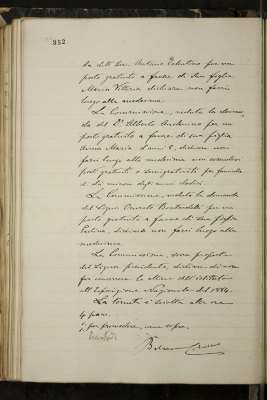 352
da dell'Avv. Antonio Valentino per un
posto gratuito a favore di sua figlia
Maria Vittoria dichiara non farsi
luogo alla medesima.
La Commissione, veduta la doman-
da del Dr. Alberto per un
posto gratuito a favore di sua figlia
Anna Maria d'anni 8, dichiara non
farsi luogo alla medesima non essendovi
posti gratuiti o semigratuiti per fanciulle
di età minore degli anni dodici.
La Commissione, veduta la domanda
del Signor Onorato per un
posto gratuito a favore di sua figlia
Paolina, dichiara non farsi luogo alla
medesima.
La Commissione, sovra proposta
del Signor presidente, dichiara di non
far concorrere le allieve dell'istituto
all'Esposizione Nazionale del 1884.
La seduta è sciolta alle ore
4 pom.
come sopra.